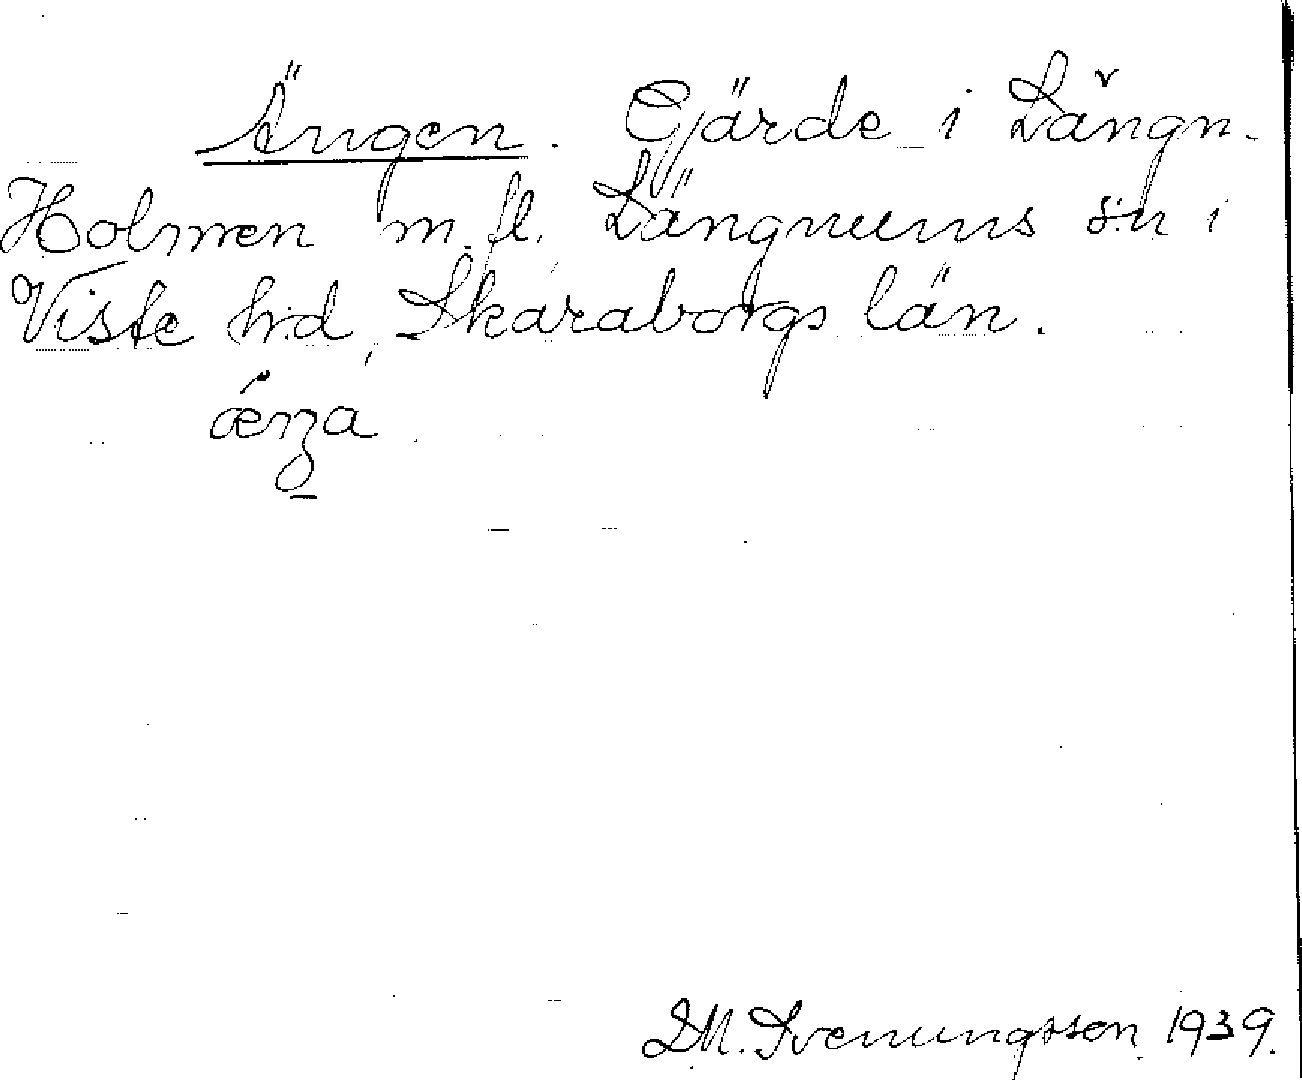 Ängen. Gjärde i Långn-
Holmen m.fl. Längnums sn i
Viste hd, Skaraborgs län.
D.M. Svenungsson 1939.